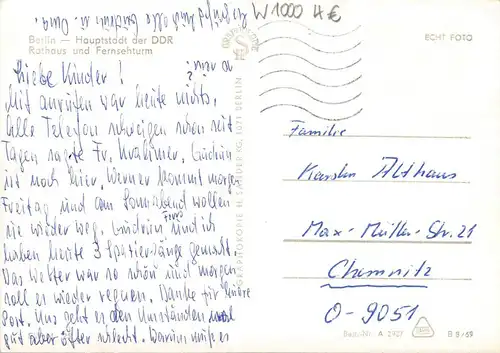 Herzlichst grüßt Euch alle Gudrun u. Oma.
W 1000 4€
Berlin — Hauptstadt der DDR
Rathaus und Fernsehturm
ECHT FOTO
Liebe Kinder!
Mit anrufen war heute nichts,
alle Telefon schweigen schon seit
Tagen sagte Fr. Krahmer. Gudrun
ist noch hier, Werner kommt morgen
Freitag und am Sonnabend wollen
sie wieder weg. Gudrun und ich
haben heute 3 Spaziergänge gemacht.
Das Wetter war so schön und morgen
soll es wieder regnen. Danke für Eure
Post. Uns geht es den Umständen nach
gut aber öfter schlecht. Warum muß es
1071 BERLIN
Familie
Karsten Althaus
Max-Müller-Str. 21
Chemnitz
O-9051
Best.-Nr. A 2907
B 8/69